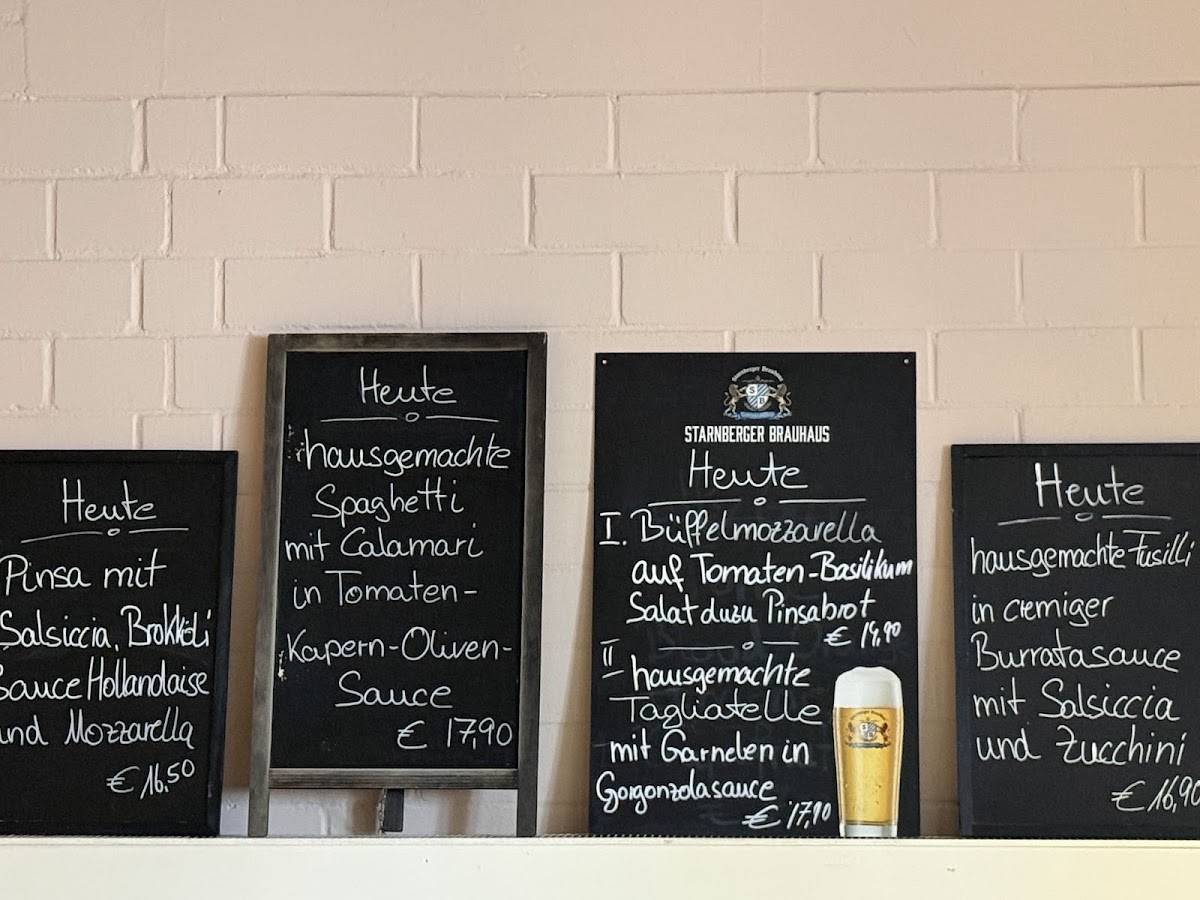 Heute
Pinsa mit
Salsiccia, Brokkoli
Sauce Hollandaise
und Mozzarella
€ 16.50
Heute
hausgemachte
Spaghetti
mit Calamari
in Tomaten-
Kapern-Oliven-
Sauce
€ 17,90
Starnberger Brauhaus
STARNBERGER BRAUHAUS
Heute
I. Büffelmozzarella
auf Tomaten-Basilikum
Salat dazu Pinsabrot
€ 14,90
II
hausgemachte
Tagliatelle
mit Garnelen in
Gorgonzolasauce
€ 17,90
Heute
hausgemachte Fusilli
in cremiger
Burratasauce
mit Salsiccia
und Zucchini
€ 16,90